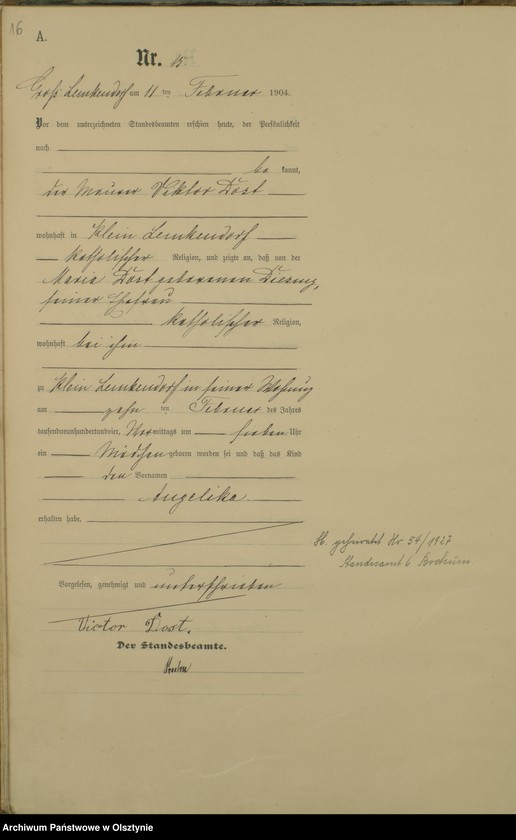 16
A.
Nr. 15
Groß Lemkendorf am 11 ten Februar 1904.
Vor dem unterzeichneten Standesbeamten erschien heute, der Persönlichkeit
nach
be kannt,
der Maurer Viktor Dost
wohnhaft in Klein Lemkendorf
katholischer Religion, und zeigte an, daß von der
Maria Dost geborenen
seiner Ehefrau
katholischer Religion,
wohnhaft bei ihm
zu Klein Lemkendorf in seiner Wohnung
am zehn ten Februar des Jahres
tausendneunhundertundvier, Vormittags um sieben Uhr
ein Mädchen geboren worden sei und daß das Kind
den Vornamen
Angelika
erhalten habe.
H. geheiratet Nr 54/1927
Standesamt 6 Bochum
Vorgelesen, genehmigt und unterschrieben
Victor Dost.
Der Standesbeamte.
Archiwum Państwowe w Olsztynie